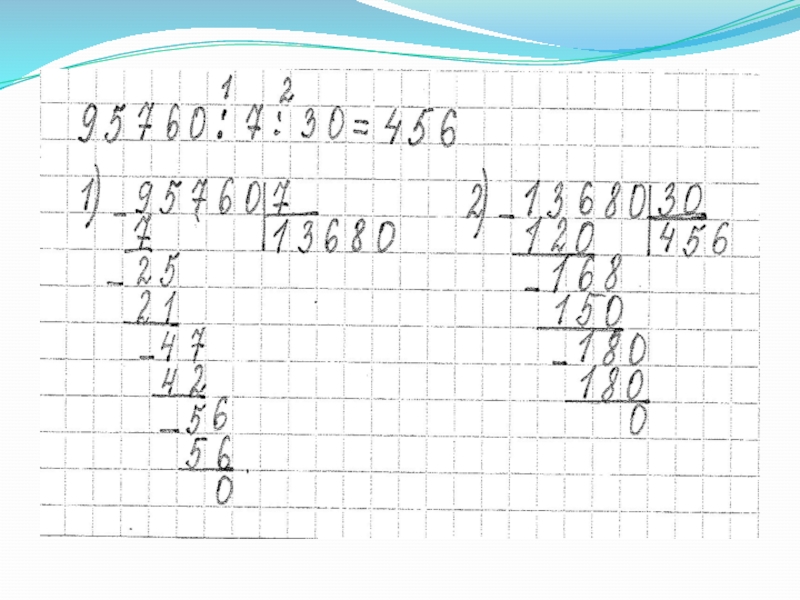 1 2
95760 : 7 : 30 = 456
1) - 95760 | 7
7 | 13680
- 25
21
- 47
42
- 56
56
0
2) - 13680 | 30
120 | 456
- 168
150
- 180
180
0